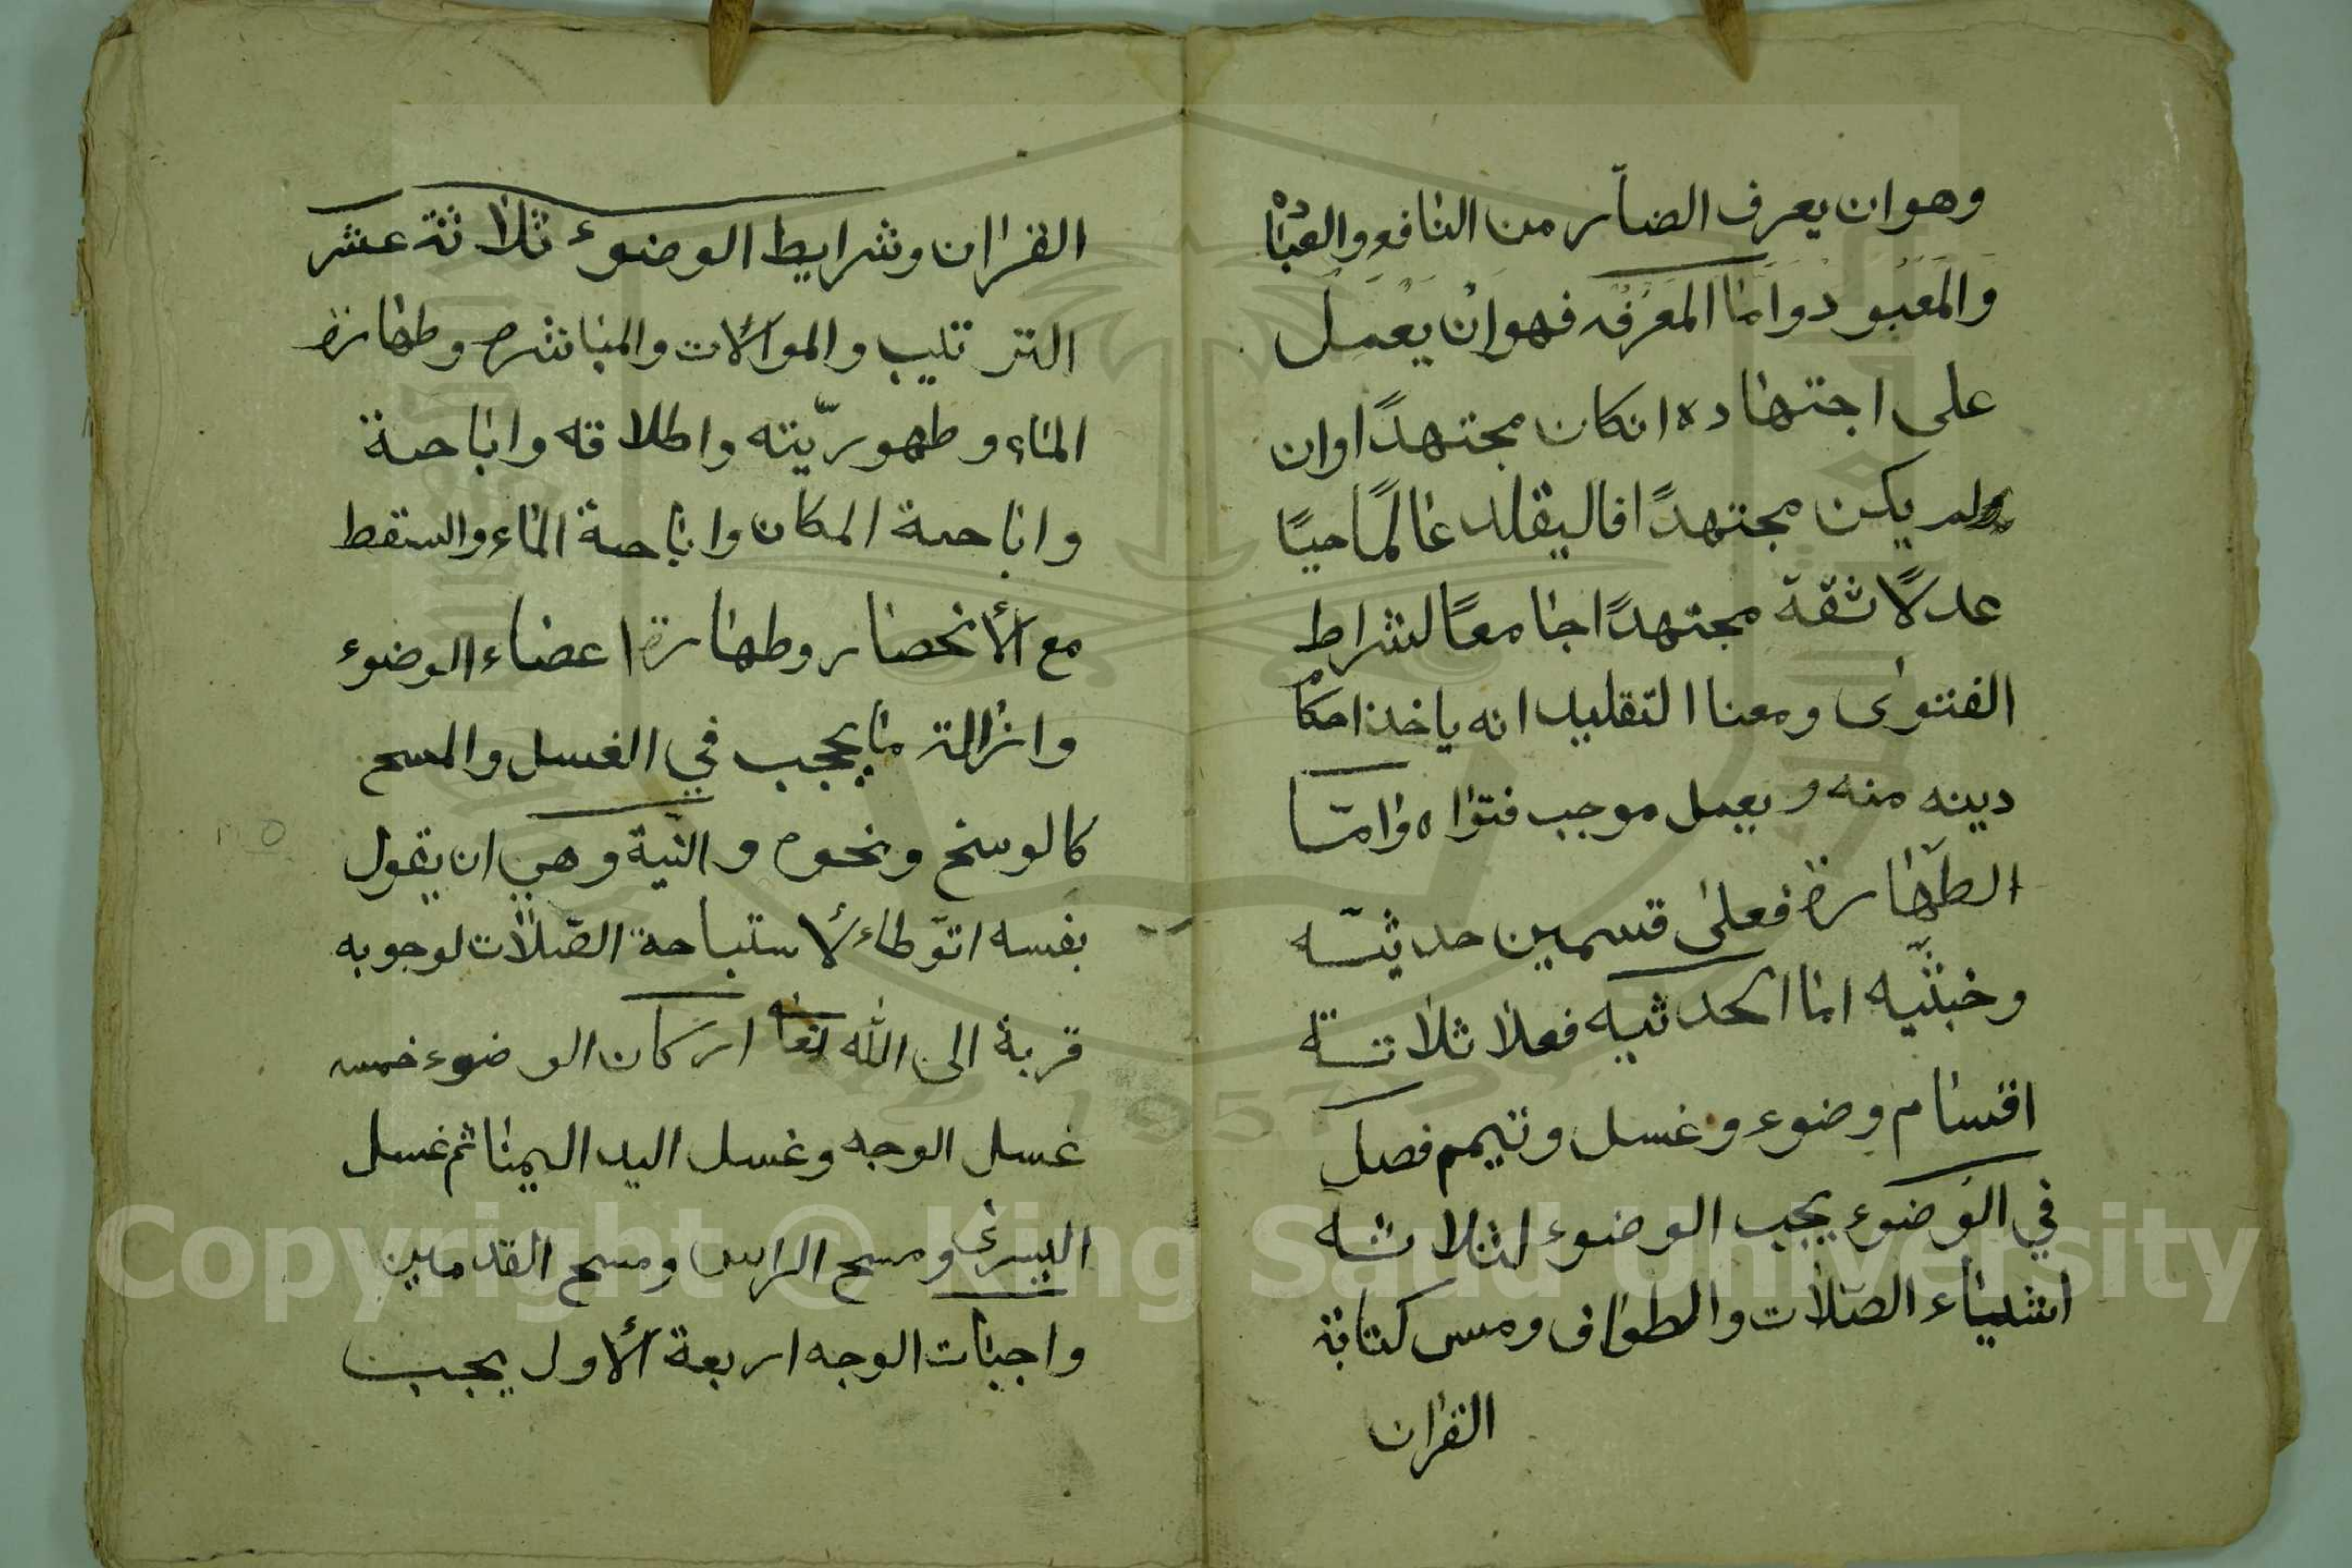 وهو ان يعرف الضاۤر من النافع والعباد
والمعبود واما المعرفه فهو ان يعمل
على اجتهاده انكان مجتهدًا وان
لم يكن مجتهدًا فاليقلد عالمًا حيًا
عدلًا ثقة مجتهدًا جامعًا لشراط
الفتوى ومعنا التقليد انه ياخذ احكام
دينه منه و يعمل موجب فتواه وامّا
الطهارة فعلى قسمين حدثيّه
وخبثيّه اما الحدثيه فعلا ثلاثة
اقسام وضوء وغسل وتيمم فصل
في الوضوء يجب الوضوء لثلاثه
اشياء الصّلات والطواف ومس كتابة
القران
القران وشرايط الوضوء ثلاثة عشر
الترتيب والموالات والمباشره وطهارة
الماء وطهوريّته واطلاقه واباحة
واباحة المكان واباحة الماء والسقط
مع الأنحصار وطهارة اعضاء الوضوء
وازالة ما يحجب في الغسل والمسح
كالوسخ ونحوه والنّية وهي ان يقول
بفسه اتوّطاء لأستباحة الصّلات لوجوبه
قربة الى الله تعا اركان الوضوء خمسه
غسل الوجه وغسل اليد اليمنا ثم غسل
اليسرى ومسح الراس ومسح القدمين
واجبات الوجه اربعة الأول يجب
Copyright © King Saud University
1957